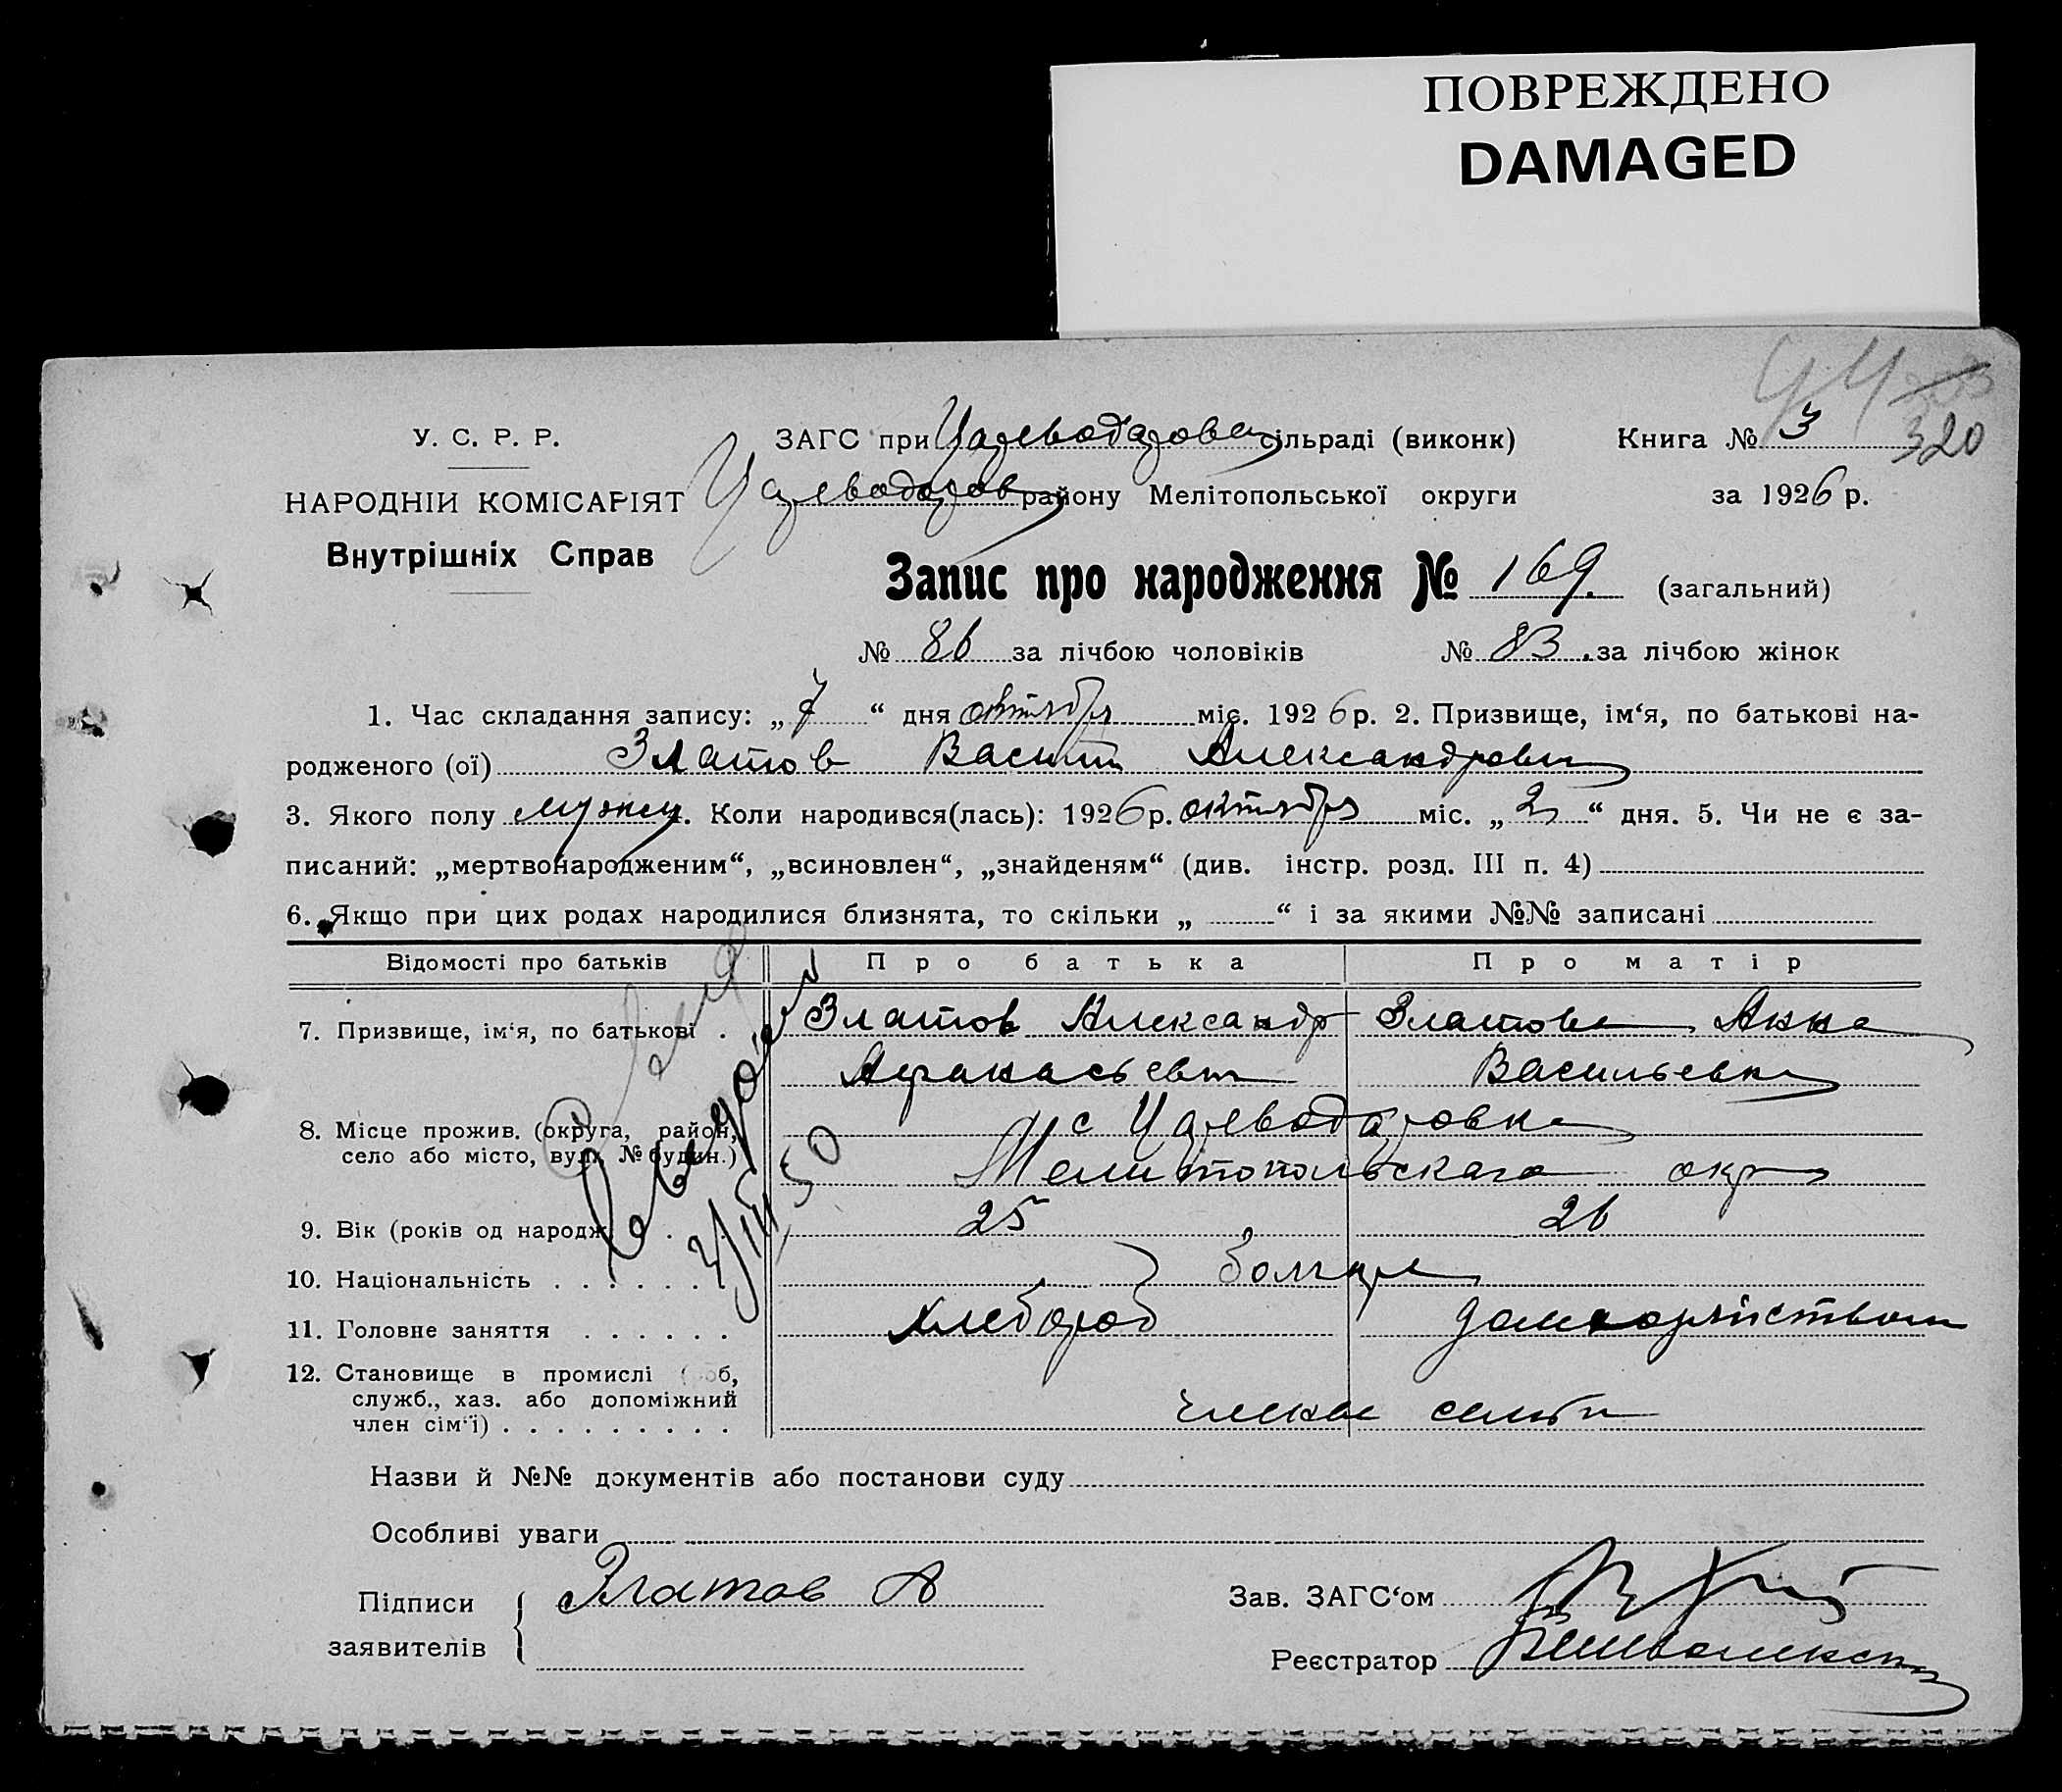 ПОВРЕЖДЕНО
DAMAGED
320
У. С. Р. Р.
ЗАГС при Цареводаровск сільраді (виконк) Книга № 3
НАРОДНІЙ КОМІСАРІЯТ Цареводаров району Мелітопольської округи за 1926 р.
Внутрішніх Справ
Запис про народження № 169. (загальний)
№ 86 за лічбою чоловіків № 83. за лічбою жінок
1. Час складання запису: „7“ дня октября міс. 1926 р. 2. Призвище, ім‘я, по батькові на-
родженого (ої) Златов Василий Александрович
3. Якого полу мужск. Коли народився(лась): 1926 р. октября міс. „2“ дня. 5. Чи не є за-
писаний: „мертвонародженим“, „всиновлен“, „знайденям“ (див. інстр. розд. III п. 4)
6. Якщо при цих родах народилися близнята, то скільки „ “ і за якими №№ записані
Відомості про батьків Про батька Про матір
7. Призвище, ім‘я, по батькові . Златов Александр Златова Анна
Афанасьевич Васильевна
8. Місце прожив. (округа, район, с Цареводаровка
село або місто, вул. № будин.) Мелитопольского окр
9. Вік (років од народж. 25 26
10. Національність . . . . . . болгаре
11. Головне заняття . . . . . . хлебороб домхозяйством
12. Становище в промислі ( об,
служб., хаз. або допоміжний
член сім‘ї) . . . . . . . . . члены семьи
Назви й №№ документів або постанови суду
Особливі уваги
Підписи Златов А Зав. ЗАГС‘ом
заявителів Реєстратор